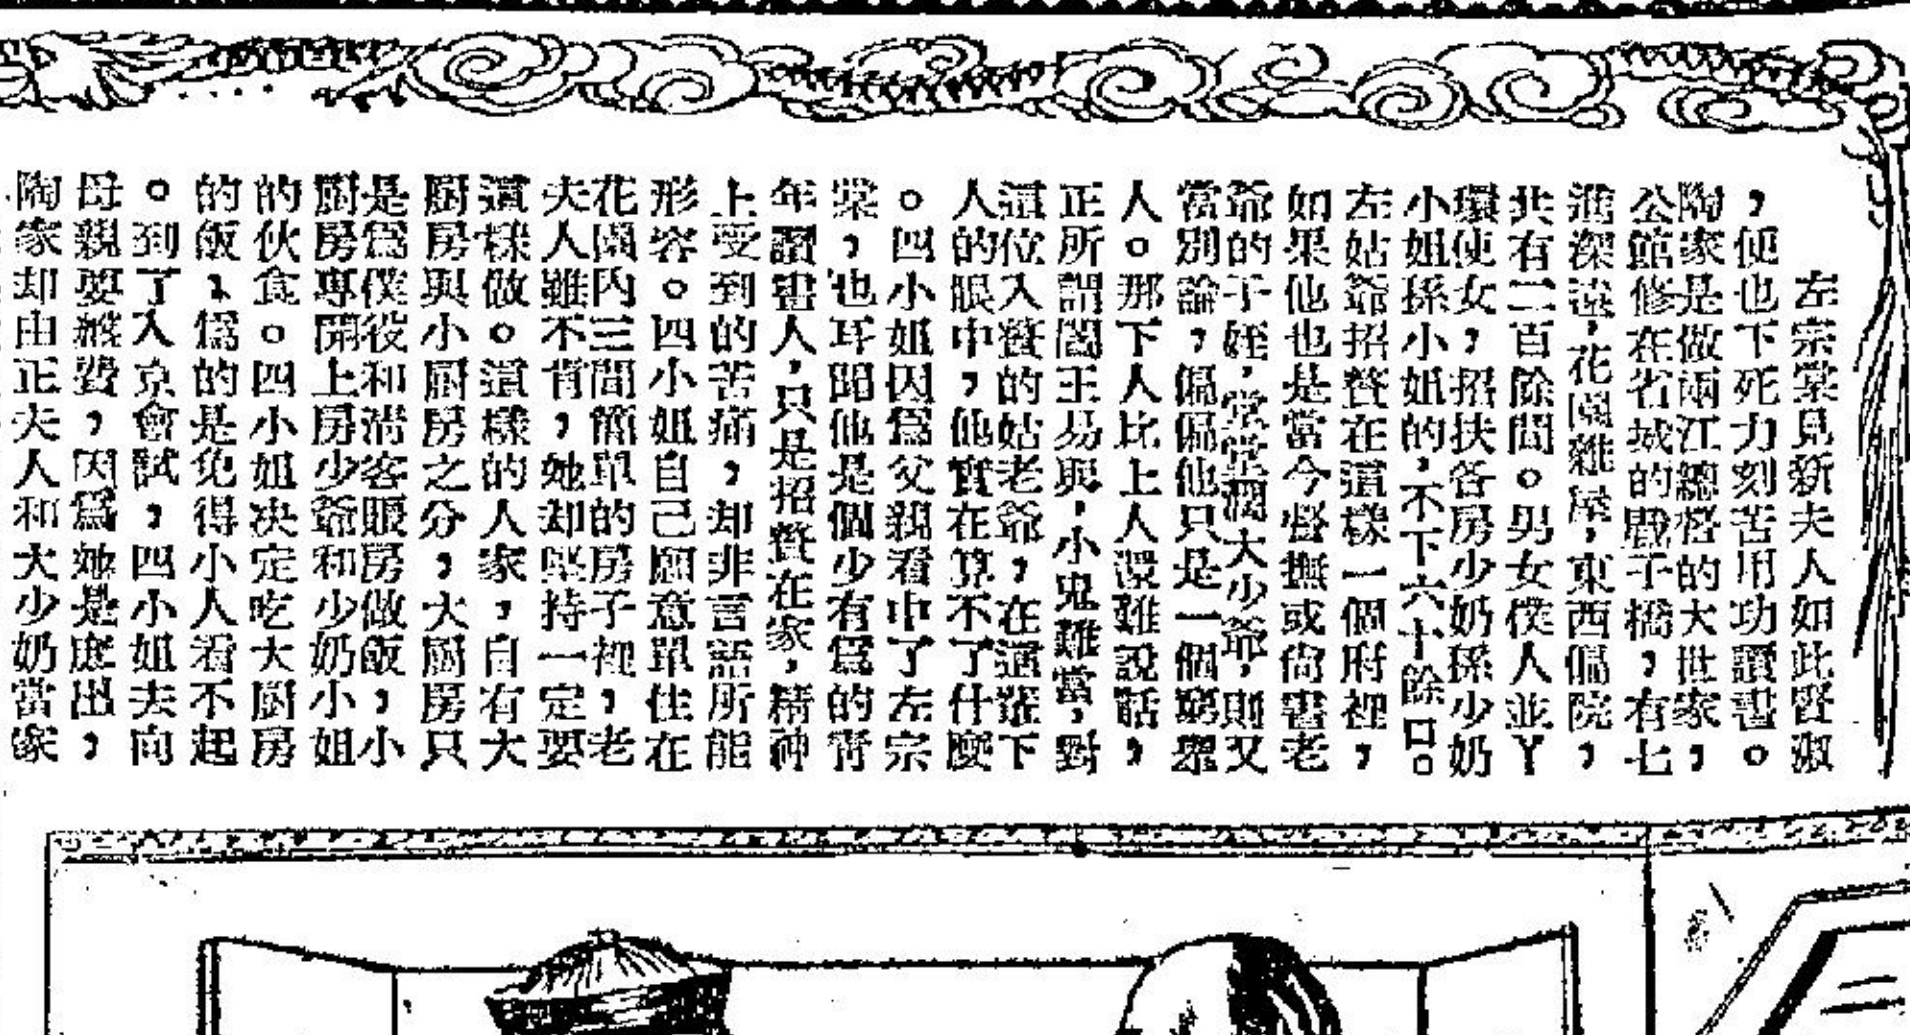 左宗棠見新夫人如此賢淑
，便也下死力刻苦用功讀書。
陶家是做兩江總督的大世家，
公館修在省城的戥子橋，有七
進深遠，花園雜屋，東西偏院，
共有二百餘間。男女僕人並丫
環使女，招扶各房少奶孫少奶
小姐孫小姐的，不下六十餘口。
左姑爺招贅在這樣一個府裡，
如果他也是當今督撫或尙書老
爺的子姪，堂堂濶大少爺，則又
當別論，偏偏他只是一個窮舉
人。那下人比上人還難說話，
正所謂閻王易與，小鬼難當，對
這位入贅的姑老爺，在這輩下
人的眼中，他實在算不了什麼
。四小姐因爲父親看中了左宗
棠，也耳聞他是個少有爲的靑
年讀書人，只是招贅在家，精神
上受到的苦痛，却非言語所能
形容。四小姐自己願意單住在
花園內三間簡單的房子裡，老
夫人雖不肯，她却堅持一定要
這樣做。這樣的人家，自有大
厨房與小厨房之分，大厨房只
是爲僕役和淸客賬房做飯，小
厨房專開上房少爺和少奶小姐
的伙食。四小姐决定吃大厨房
的飯，爲的是免得小人看不起
。到了入京會試，四小姐去向
母親要繳費，因爲她是庶出，
陶家却由正夫人和大少奶當家